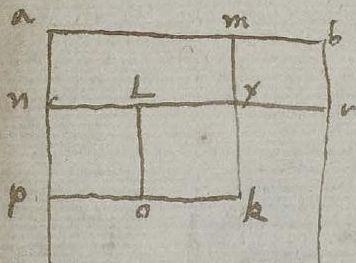 a m b
n L x
p o k